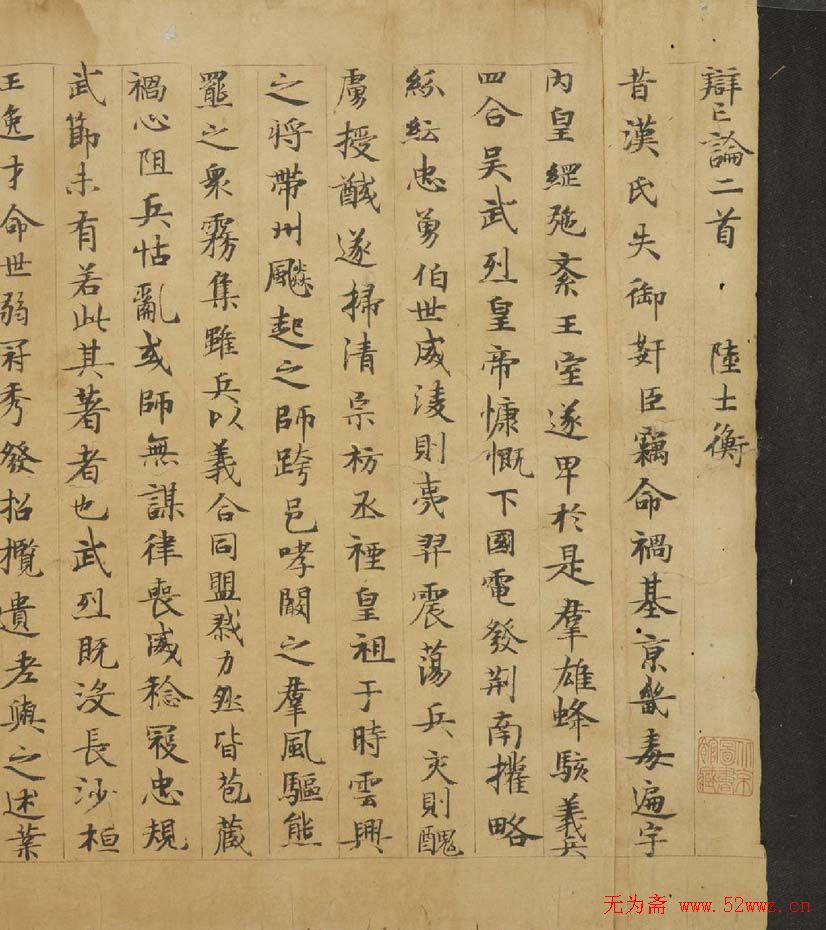 辯亡論二首 陸士衡
昔漢氏失御奸臣竊命禍基京畿毒遍宇
內皇綱弛紊王室遂卑於是羣雄蜂駭義兵
四合吳武烈皇帝慷慨下國電發荊南權略
紛紜忠勇伯世威淩則夷羿震蕩兵交則醜
虜授馘遂掃清宗祊丞禋皇祖于時雲興
之將帶州飈起之師跨邑哮闞之羣風驅熊
羆之衆霧集雖兵以義合同盟戮力然皆苞藏
禍心阻兵怙亂或師無謀律喪威稔寇忠規
武節未有若此其著者也武烈既沒長沙桓
王逸才命世弱冠秀發招攬遺老與之述業
无为斋 www.52wwz.cn